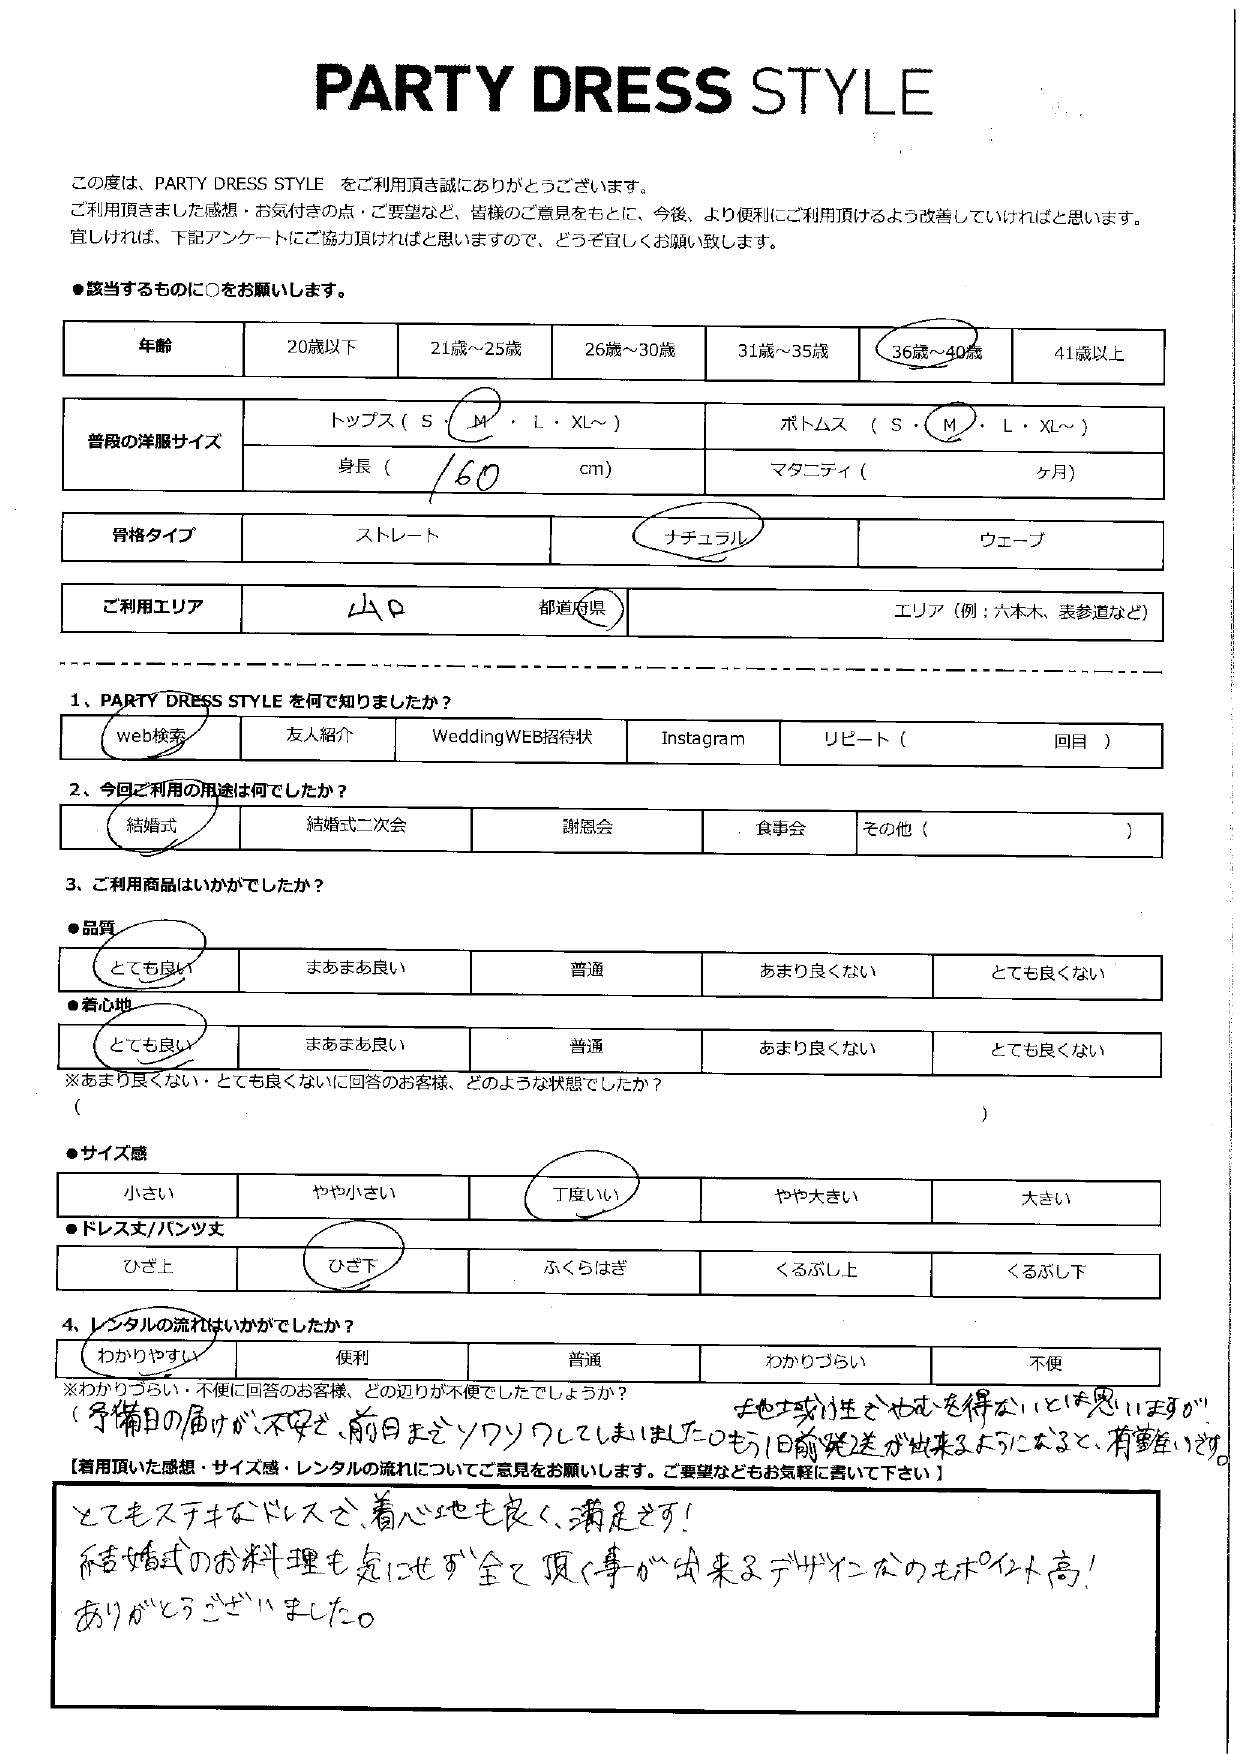 PARTY DRESS STYLE
この度は、PARTY DRESS STYLE をご利用頂き誠にありがとうございます。
ご利用頂きました感想・お気付きの点・ご要望など、皆様のご意見をもとに、今後、より便利にご利用頂けるよう改善していければと思います。
宜しければ、下記アンケートにご協力頂ければと思いますので、どうぞ宜しくお願い致します。
●該当するものに○をお願いします。
年齢 20歳以下 21歳～25歳 26歳～30歳 31歳～35歳 36歳～40歳 41歳以上
普段の洋服サイズ トップス ( S ・ M ・ L ・ XL～ ) ボトムス ( S ・ M ・ L ・ XL～ )
身長 ( 160 cm) マタニティ ( ヶ月)
骨格タイプ ストレート ナチュラル ウェーブ
ご利用エリア 山口 都道府県 エリア（例；六本木、表参道など）
1、PARTY DRESS STYLE を何で知りましたか？
web検索 友人紹介 WeddingWEB招待状 Instagram リピート ( 回目 )
2、今回ご利用の用途は何でしたか？
結婚式 結婚式二次会 謝恩会 食事会 その他 ( )
3、ご利用商品はいかがでしたか？
●品質
とても良い まあまあ良い 普通 あまり良くない とても良くない
●着心地
とても良い まあまあ良い 普通 あまり良くない とても良くない
※あまり良くない・とても良くないに回答のお客様、どのような状態でしたか？
( )
●サイズ感
小さい やや小さい 丁度いい やや大きい 大きい
●ドレス丈/パンツ丈
ひざ上 ひざ下 ふくらはぎ くるぶし上 くるぶし下
4、レンタルの流れはいかがでしたか？
わかりやすい 便利 普通 わかりづらい 不便
※わかりづらい・不便に回答のお客様、どの辺りが不便でしたでしょうか？
地域性でやむを得ないとは思いますが、
( 予備日の届けが、不安で、前日までソワソワしてしまいました。もう1日前発送が出来るようになると、有難いです。
【着用頂いた感想・サイズ感・レンタルの流れについてご意見をお願いします。ご要望などもお気軽に書いて下さい】
とてもステキなドレスで、着心地も良く、満足です！
結婚式のお料理も気にせず全て頂く事が出来るデザインなのもポイント高！
ありがとうございました。